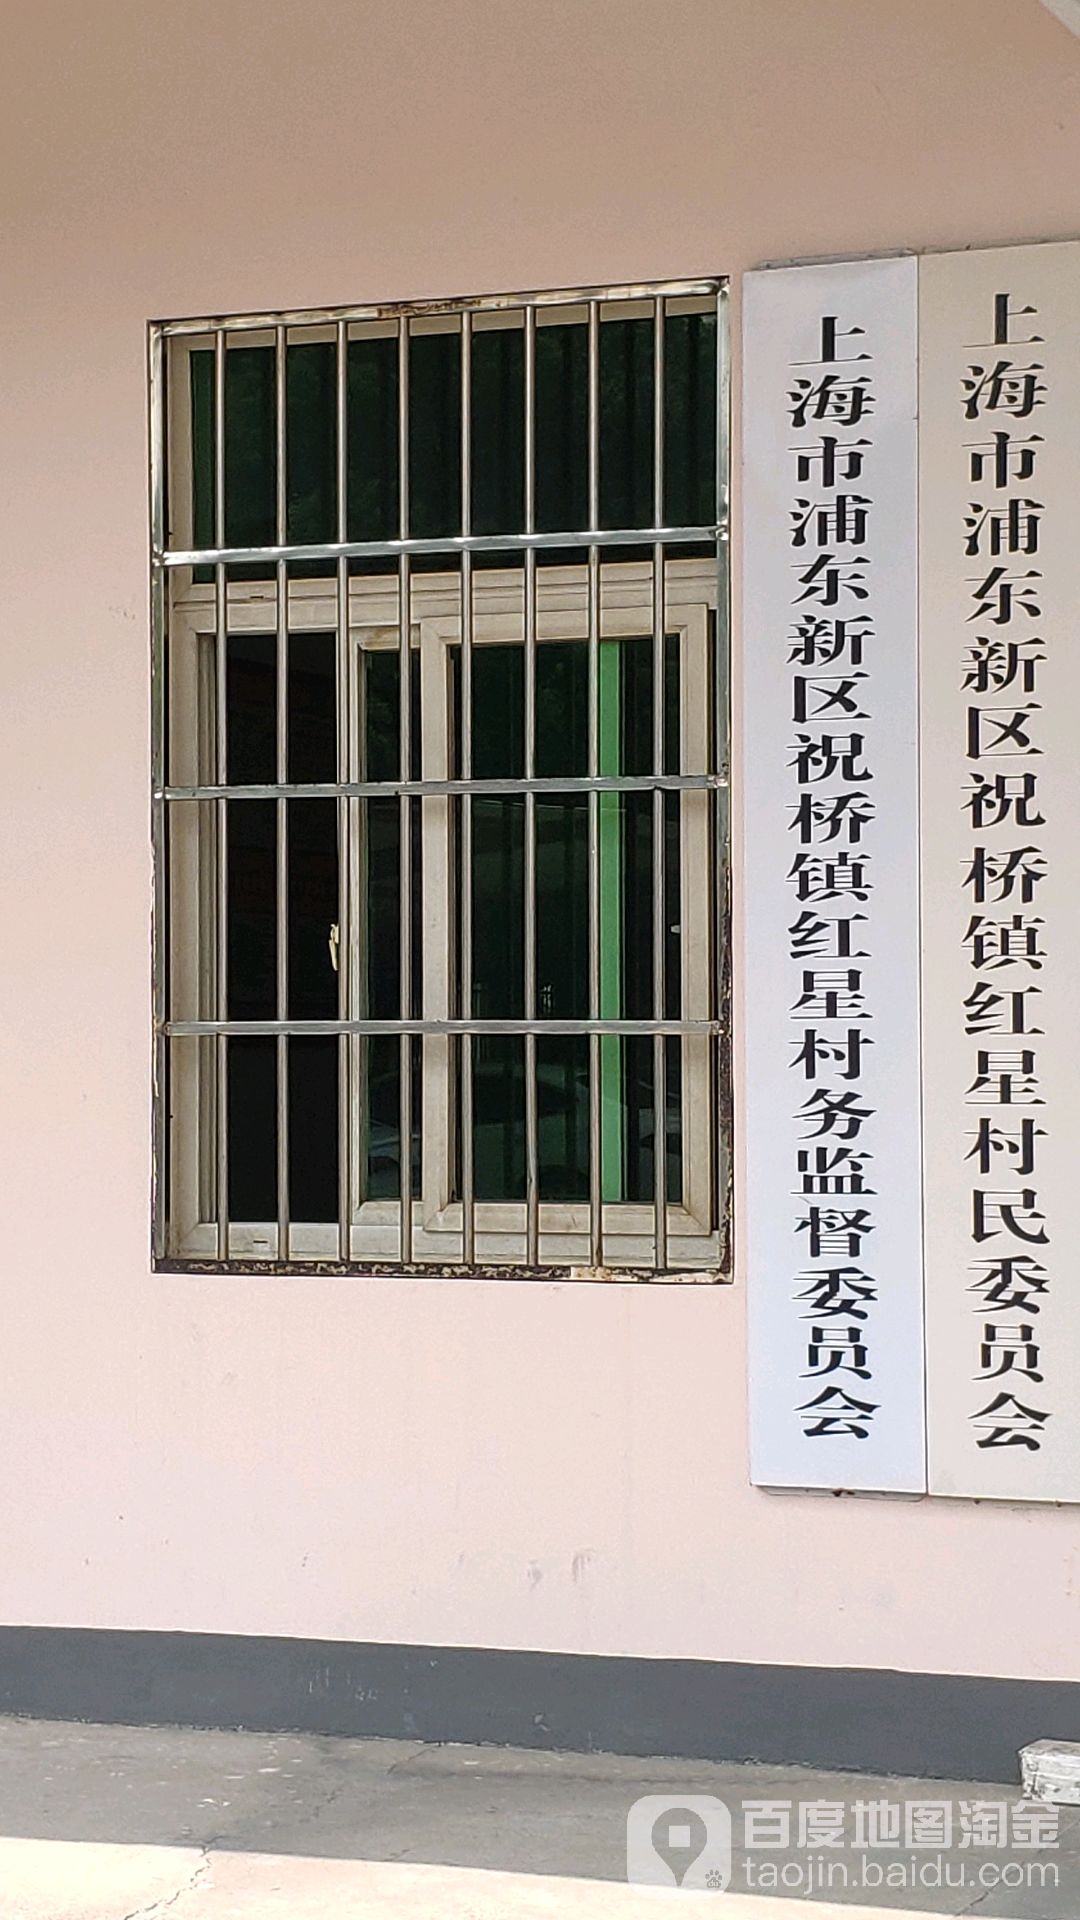 上海市浦东新区祝桥镇红星村民委员会
上海市浦东新区祝桥镇红星村务监督委员会
百度地图淘金
taojin.baidu.com